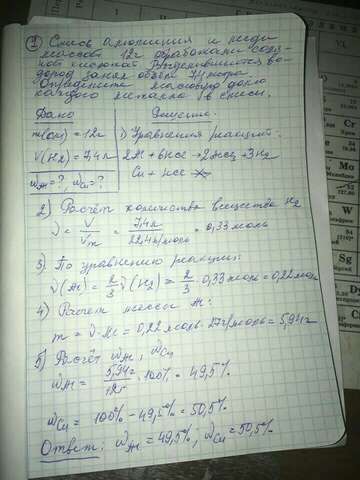 ① Смесь алюминия и меди
массой 12г обработали соля-
ной кислотой. Выделившийся во-
дород занял объём 7,4 литра.
Определите массовую долю
каждого металла в смеси.
Дано Решение:
m(см) = 12г 1) Уравнения реакций:
V(H₂) = 7,4л 2Al + 6HCl → 2AlCl₃ + 3H₂
Cu + HCl ↛
ωAl = ?, ωCu = ?
2) Расчёт количества вещества H₂
ν = V/Vm = 7,4л/22,4л/моль = 0,33 моль
3) По уравнению реакции:
ν(Al) = 2/3 ν(H₂) = 2/3 · 0,33 моль = 0,22 моль
4) Расчёт массы Al:
m = ν · M = 0,22 моль · 27г/моль = 5,94г
5) Расчёт ωAl, ωCu
ωAl = 5,94г/12г · 100% = 49,5%
ωCu = 100% - 49,5% = 50,5%
Ответ: ωAl = 49,5%, ωCu = 50,5%